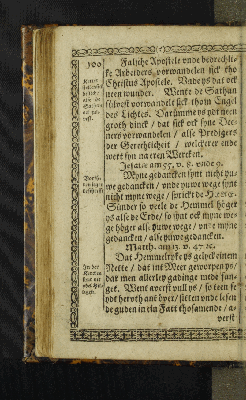 100
Falsche Apostele vnde bedrechlike
Arbeiders vorwandelen sick tho
Christus Apostele. Vnde ys dat ock
neen wunder. Wente de Sathan
sülvest vorwandelt sick thom Engel
des Lichtes. Darümme ys ydt neen
groth dinck / dat sick ock syne Deeners
vorwandelen / alse Predigers
der Gerechticheit / welckerer ende
wert syn na eren Wercken.
Jesaiæ am 55. v. 8. vnde 9.
Myne gedancken synt nicht juwe
gedancken / vnde juwe wege synt
nicht myne wege / sprickt de HERE.
Sünder so veele de Hemmel höger
ys alse de Erde / so synt ock myne wege
höger alse juwe wege / vnde myne
gedancken / alse juwe gedancken.
Matth. am 13. v. 47. 48.
Dat Hemmelryke ys gelyck einem
Nette / dat int Meer geworpen ys /
dar men allerley gadinge mede fanget.
Went averst vull ys / so teen se
ydt heruth an den över / sitten vnde lesen
de guden in ein Fatt thosamende / averst